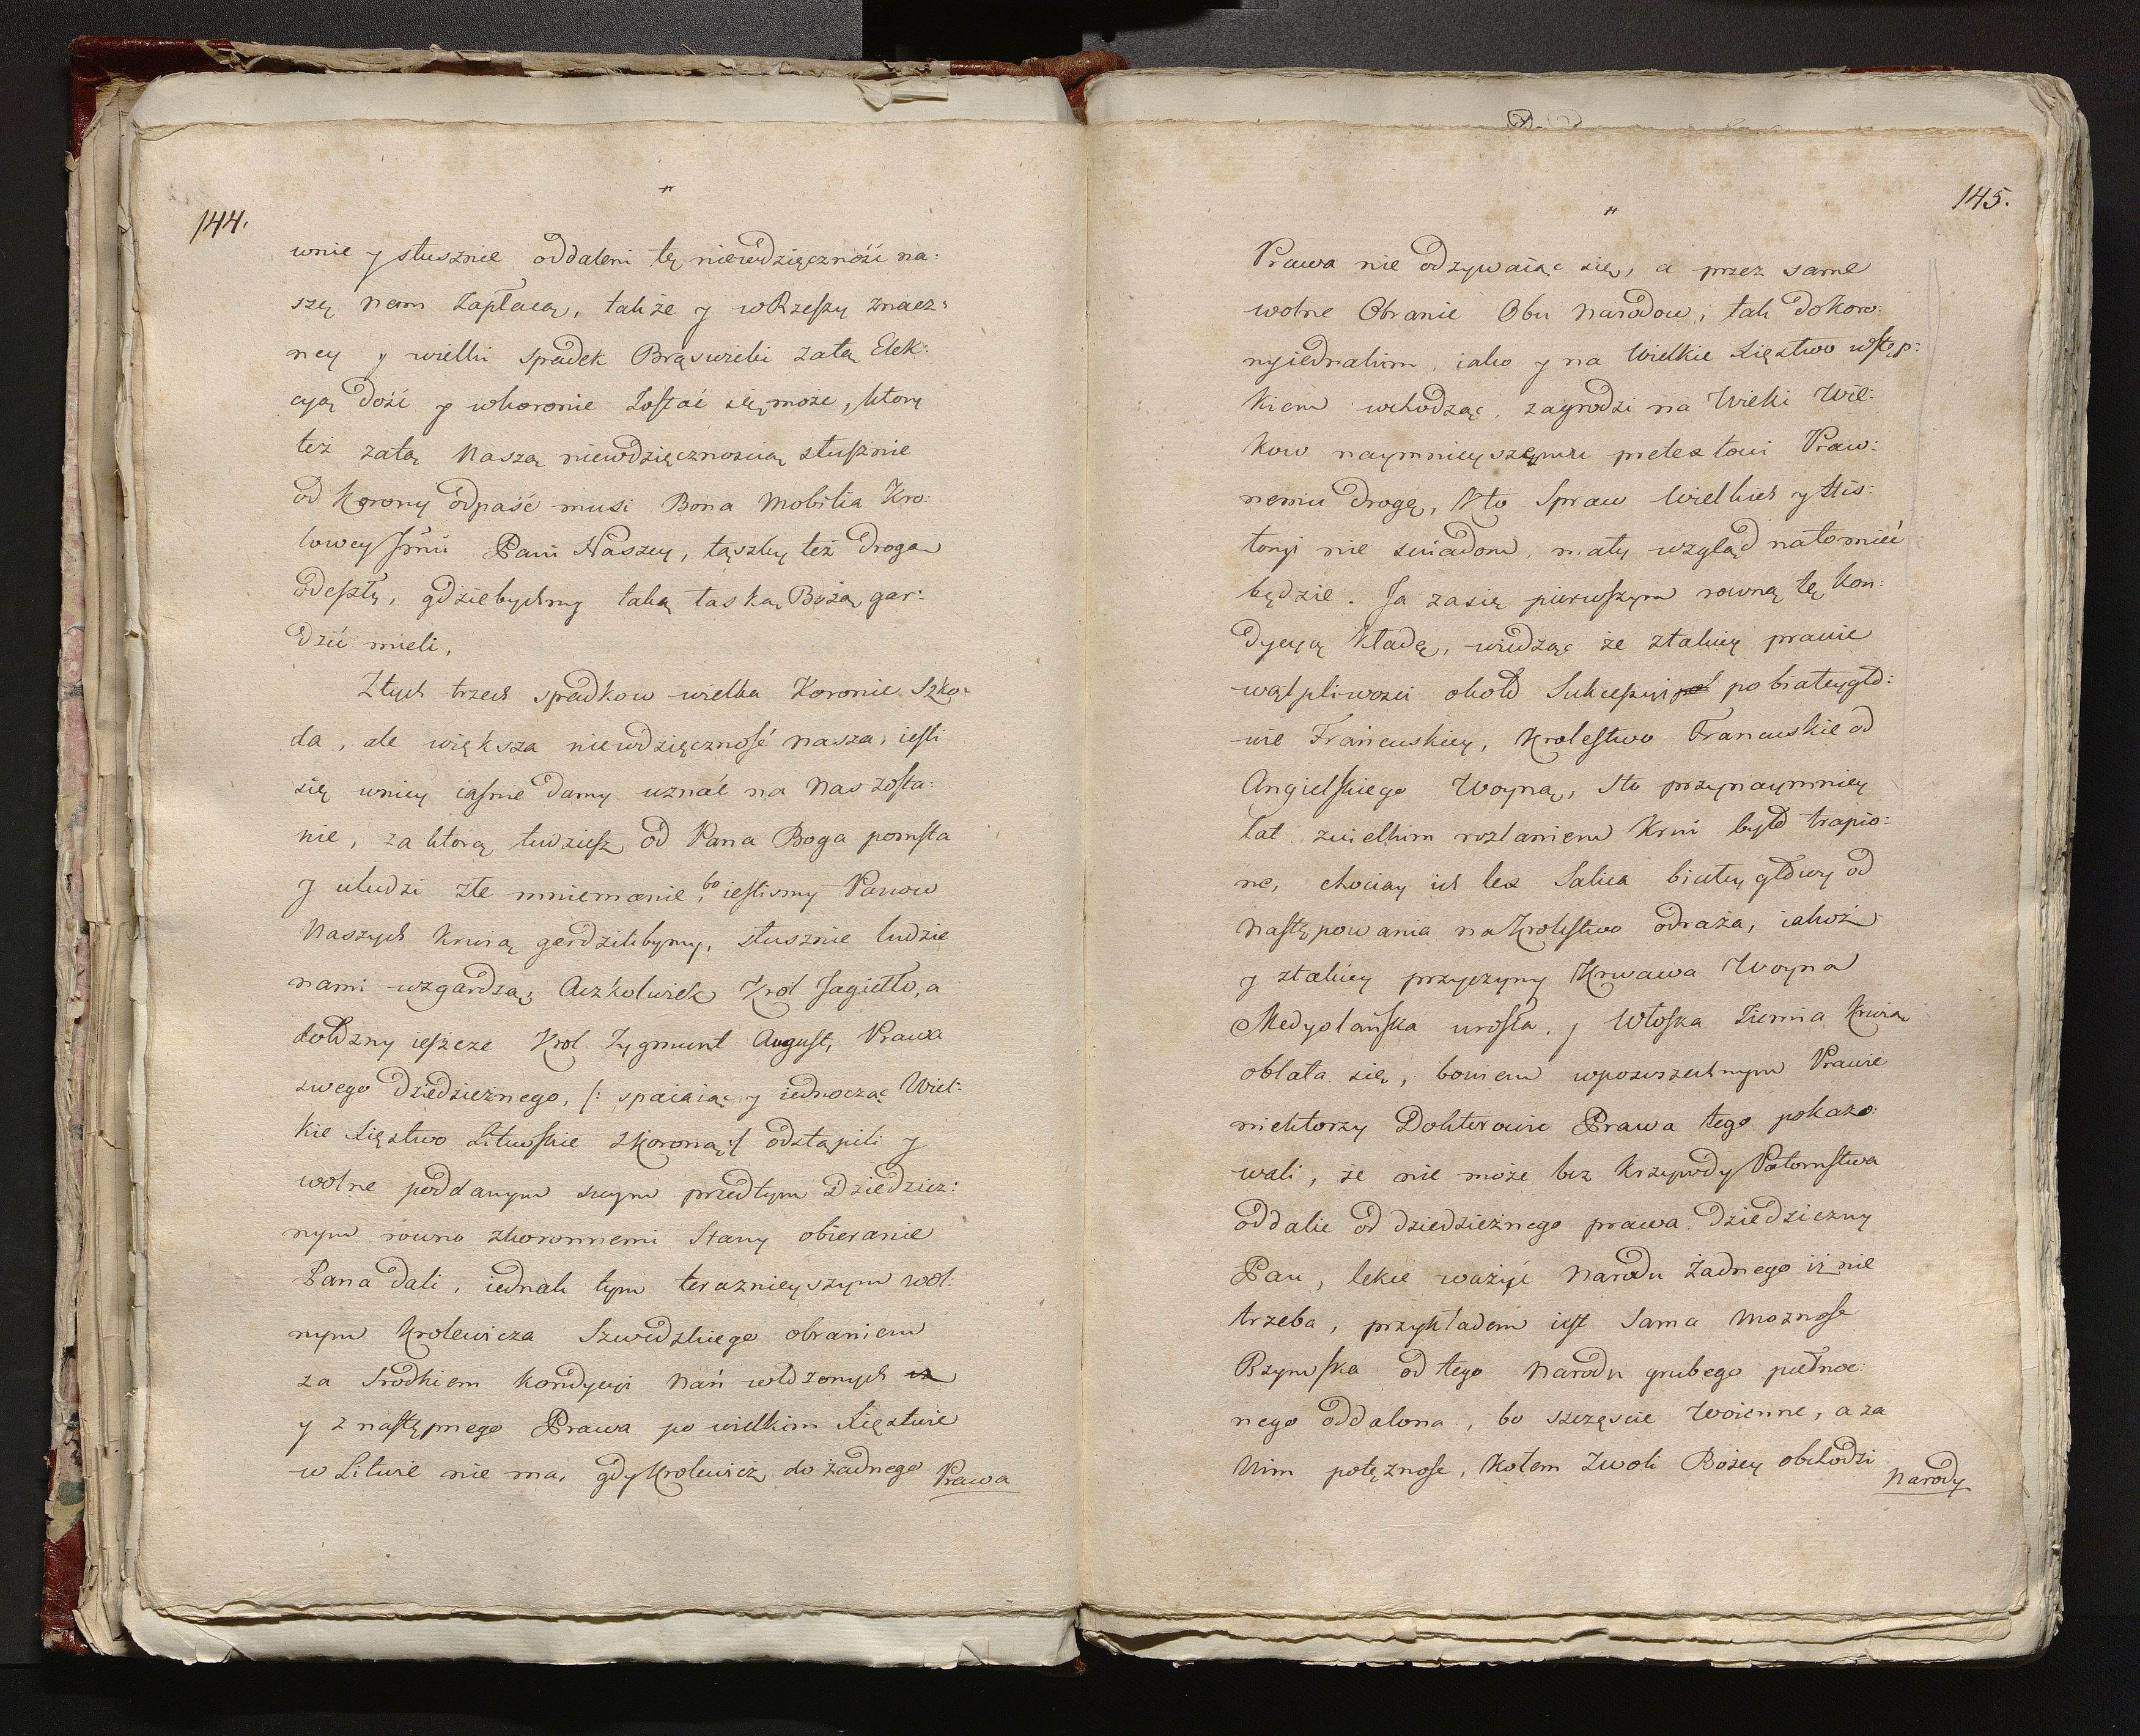 144.
wnie y słusznie oddaleni tę niewdzięczność na:
szę nam zapłacą, także y w Rzeszy znacz:
ney y wielki spadek Brąświcki zatą Elek:
cyą dość y wkoronie zostać się może, ktory
też zatą naszą niewdzięcznoscią słusznie
od korony odpaść musi Bona Mobilia Kro:
lowey Pani Naszey, tąszby też drogą
odeszły, gdziebychmy taką łaską Bożą gar:
dzić mieli,
Ztych trzech spadkow wielka Koronie Szko:
da, ale większa niewdzięczność nasza, iesli
się wniey iasnie damy uznać na nas zosta:
nie, za ktorą tudziesz od Pana Boga pomsta
y uludzi złe mniemanie, bo iesliśmy Panow
Naszych krwią gardzilibysmy, słusznie ludzie
nami wzgardzą, Aczkolwiek Krol Jagiełło, a
doldzny ieszcze Krol Zygmunt August, Prawa
swego Dziedzicznego, /: spaiaiąc y iednocząc Wiel:
kie Xięstwo Litewskie zKoroną :/ odstąpili y
wolne poddanym swym przedtym Dziedzicz:
nym rowno zkoronnemi Stany obieranie
Pana dali, iednak tym teraznieyszym wol:
nym Krolewicza Szwedzkiego obraniem
za srodkiem kondycyi nań włdzonych
y z następnego Prawa po wielkim Xięstwie
w Litwie nie ma, gdy Krolewicz do żadnego
Prawa
145.
Prawa nie odzywaiąc się, a przez same
wolne Obranie Obu Narodow, tak do Koro:
ny iednakim, iako y na Wielkie Xięstwo wstęp:
kiem wchodząc, zagrodzi na Wieki Wie:
kow naymnieyszemu pretextowi Praw:
nemu drogę, Kto Spraw Wielkich y His:
toryi nie świadom, mały wzgląd natomieć
będzie. Ja zasię pierwszym rowną tę kon:
dycyą kładę, widząc że ztakiey prawie
wątpliwości około Sukcessyi po białeygło:
wie Francuskiey, Krolestwo Francuskie od
Angielskiego Woyną, Sto przynaymniey
lat zwielkim rozlaniem Krwi było trapio:
ne, chociay ich lex Salica białey głowy od
następowania na Krolestwo odraża, iakoż
y ztakiey przyczyny Krwawa Woyna
Medyolańska urosła, y Włoska Ziemia Krwią
oblała się, bowiem wposwszechnym Prawie
niektorzy Doktorowie Prawa tego pokazo:
wali, że nie może bez krzywdy Potomstwa
oddalić od dziedzicznego prawa Dziedziczny
Pan, lekce ważyć Narodu Żadnego iż nie
trzeba, przykładem iest Sama możnosc
Rzymska od tego Narodu grubego połnoc:
nego oddalona, bo szczęscie Woienne, a za
Nim potęznosc, kołem Zwoli Bożey obchodzi
Narody